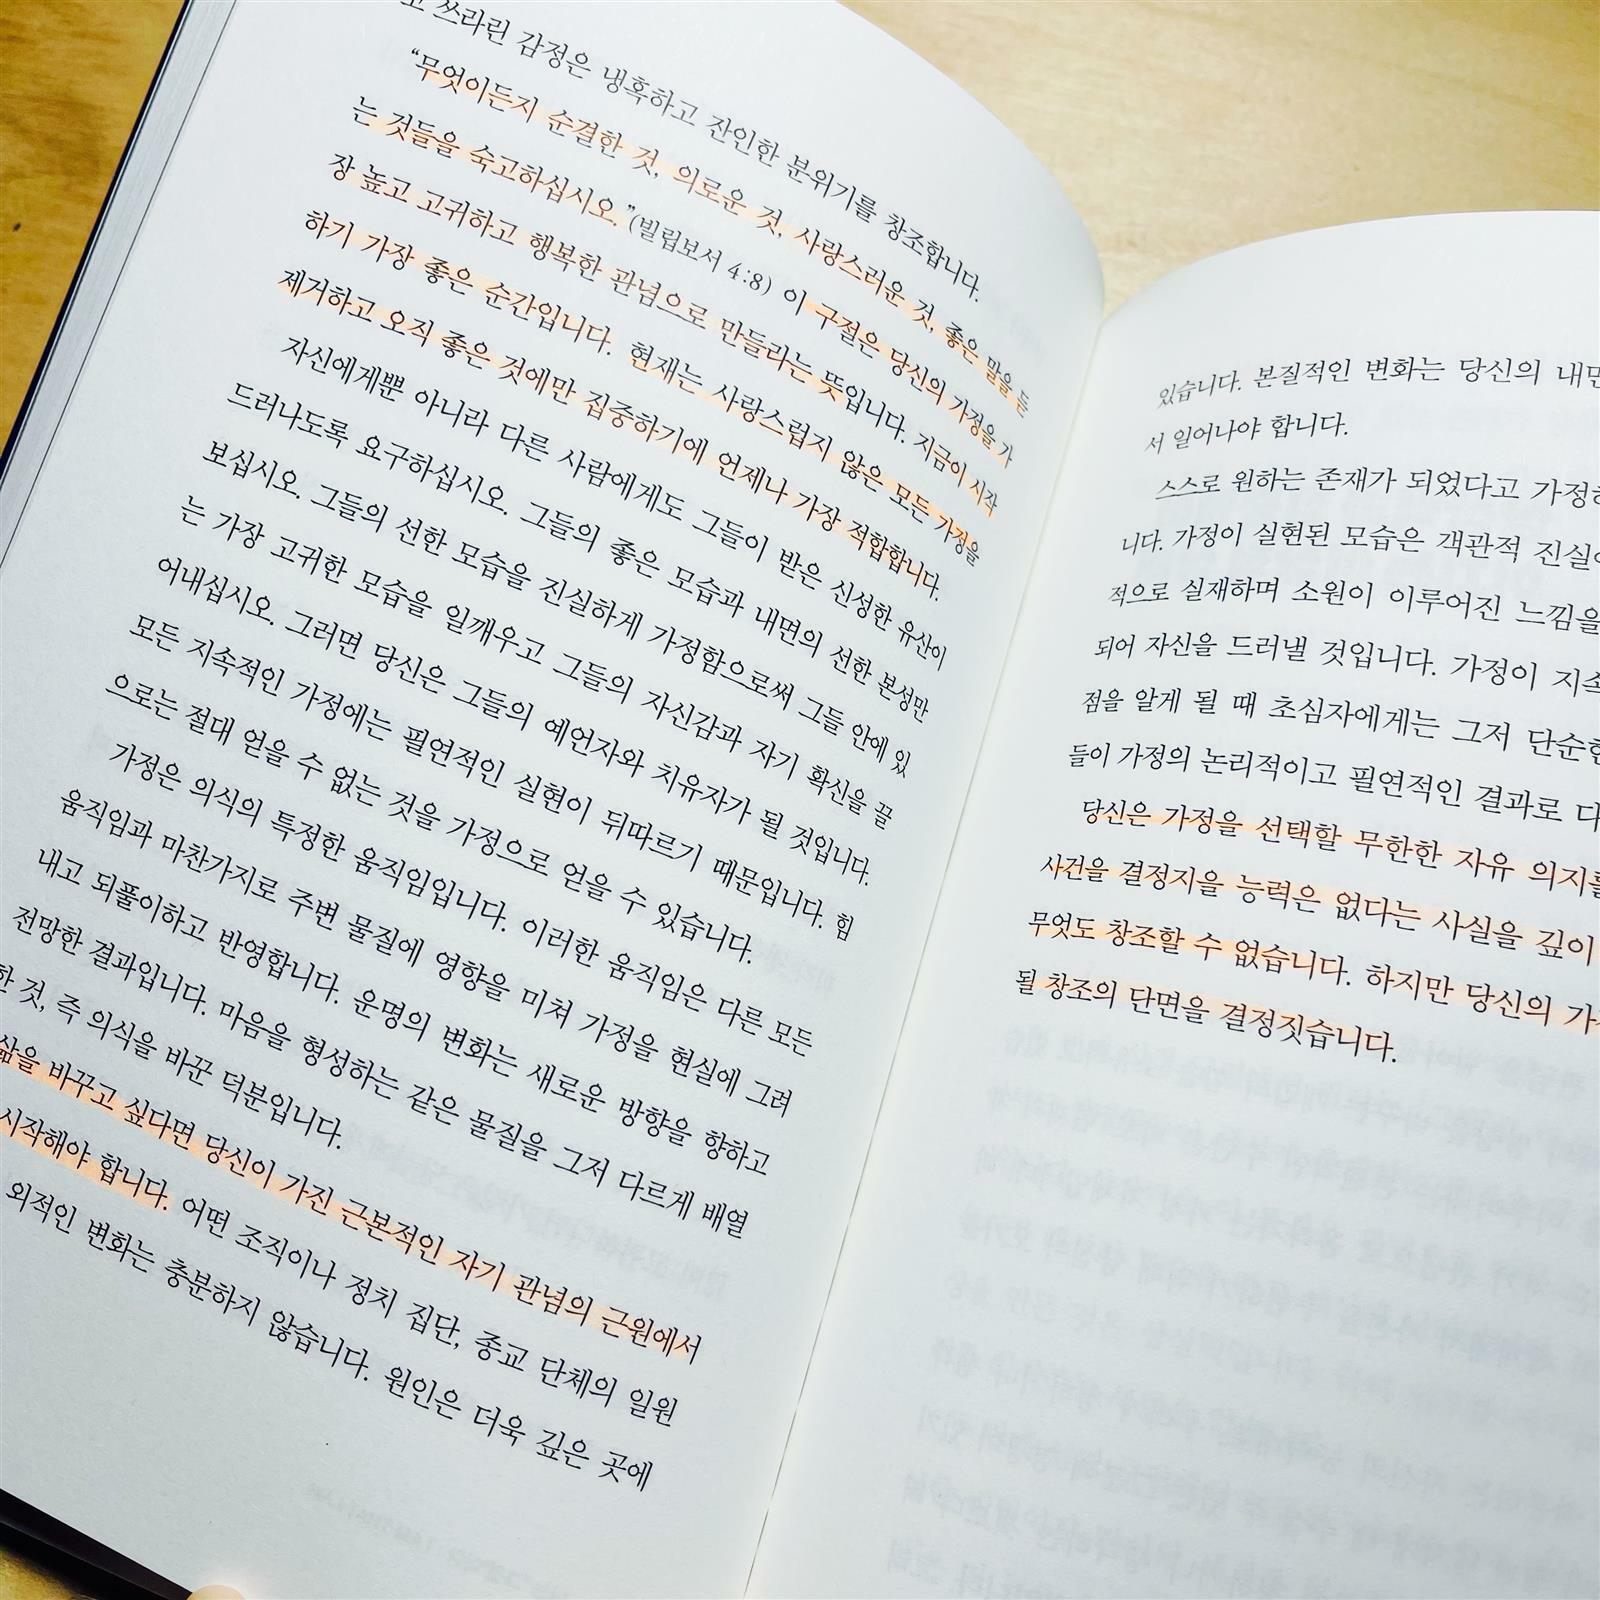 고 쓰라린 감정은 냉혹하고 잔인한 분위기를 창조합니다.
“무엇이든지 순결한 것, 의로운 것, 사랑스러운 것, 좋은 말을 듣
는 것들을 숙고하십시오.”(빌립보서 4:8) 이 구절은 당신의 가정을 가
장 높고 고귀하고 행복한 관념으로 만들라는 뜻입니다. 지금이 시작
하기 가장 좋은 순간입니다. 현재는 사랑스럽지 않은 모든 가정을
제거하고 오직 좋은 것에만 집중하기에 언제나 가장 적합합니다.
자신에게뿐 아니라 다른 사람에게도 그들이 받은 신성한 유산이
드러나도록 요구하십시오. 그들의 좋은 모습과 내면의 선한 본성만
보십시오. 그들의 선한 모습을 진실하게 가정함으로써 그들 안에 있
는 가장 고귀한 모습을 일깨우고 그들의 자신감과 자기 확신을 끌
어내십시오. 그러면 당신은 그들의 예언자와 치유자가 될 것입니다.
모든 지속적인 가정에는 필연적인 실현이 뒤따르기 때문입니다. 힘
으로는 절대 얻을 수 없는 것을 가정으로 얻을 수 있습니다.
가정은 의식의 특정한 움직임입니다. 이러한 움직임은 다른 모든
움직임과 마찬가지로 주변 물질에 영향을 미쳐 가정을 현실에 그려
내고 되풀이하고 반영합니다. 운명의 변화는 새로운 방향을 향하고
전망한 결과입니다. 마음을 형성하는 같은 물질을 그저 다르게 배열
한 것, 즉 의식을 바꾼 덕분입니다.
삶을 바꾸고 싶다면 당신이 가진 근본적인 자기 관념의 근원에서
시작해야 합니다. 어떤 조직이나 정치 집단, 종교 단체의 일원
외적인 변화는 충분하지 않습니다. 원인은 더욱 깊은 곳에
있습니다. 본질적인 변화는 당신의 내면
서 일어나야 합니다.
스스로 원하는 존재가 되었다고 가정하
니다. 가정이 실현된 모습은 객관적 진실
적으로 실재하며 소원이 이루어진 느낌을
되어 자신을 드러낼 것입니다. 가정이 지속
점을 알게 될 때 초심자에게는 그저 단순한
들이 가정의 논리적이고 필연적인 결과로 다
당신은 가정을 선택할 무한한 자유 의지를
사건을 결정지을 능력은 없다는 사실을 깊이
무엇도 창조할 수 없습니다. 하지만 당신의 가
될 창조의 단면을 결정짓습니다.